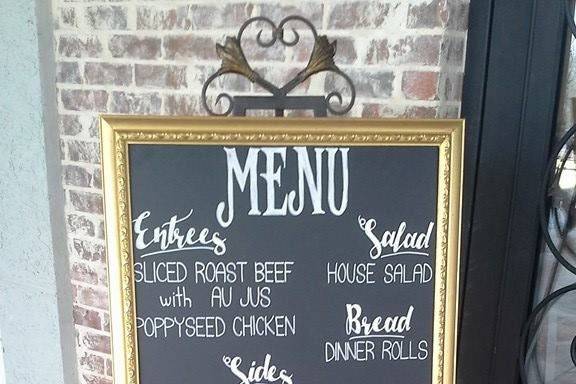 MENU
Entrees
SLICED ROAST BEEF
with AU JUS
POPPYSEED CHICKEN
Salad
HOUSE SALAD
Bread
DINNER ROLLS
Sides